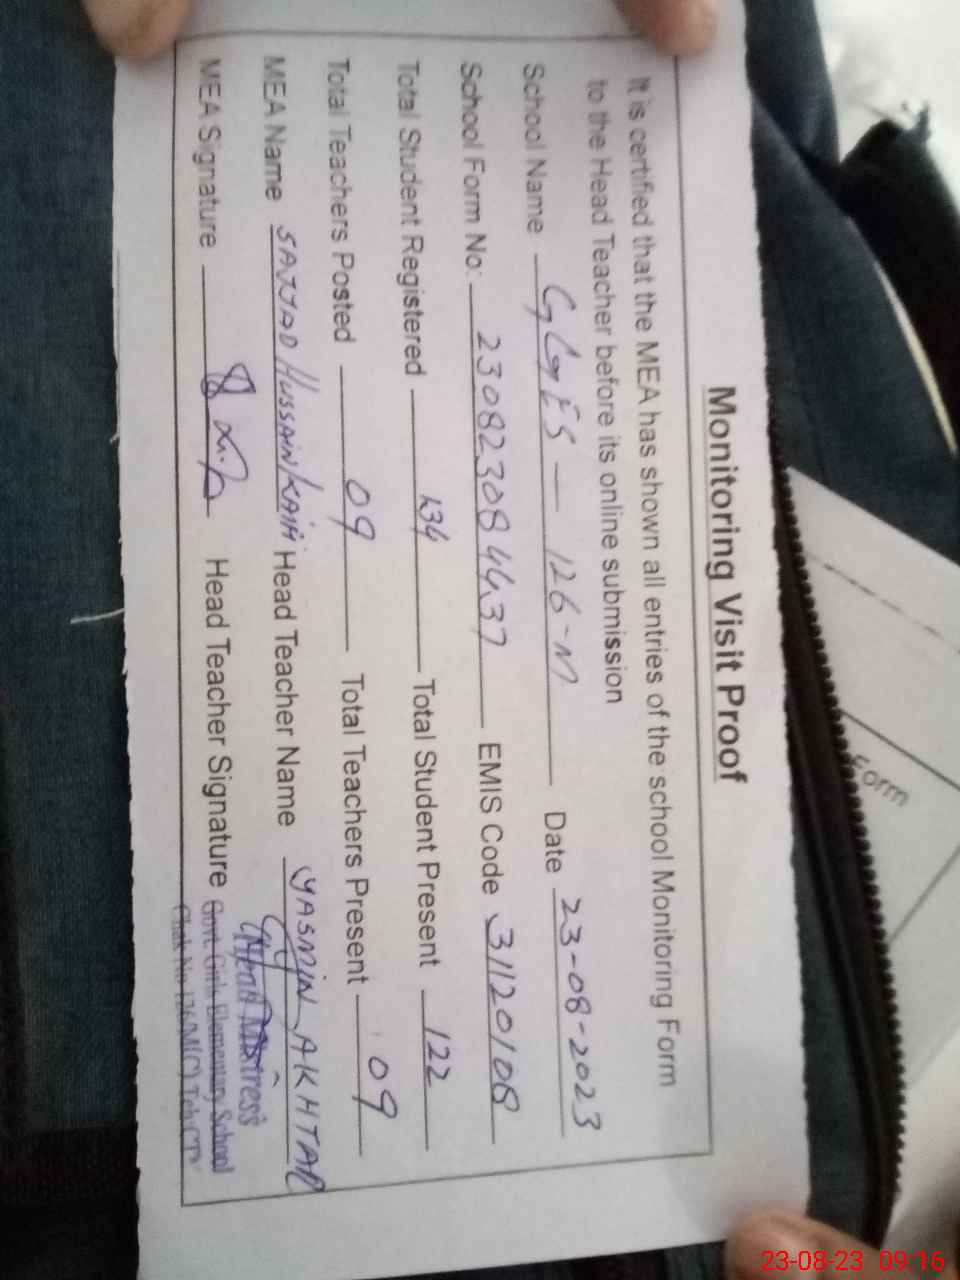 Monitoring Visit Proof
It is certified that the MEA has shown all entries of the school Monitoring Form
to the Head Teacher before its online submission
School Name GGES - 126-M Date 23-08-2023
School Form No: 2308230844437 EMIS Code 31120108
Total Student Registered 134 Total Student Present 122
Total Teachers Posted 09 Total Teachers Present 09
MEA Name SAJJAD HUSSAIN KAIM Head Teacher Name YASMIN AKHTAR
MEA Signature Head Teacher Signature
Head Mistress
Govt. Girls Elementary School
Chak No 126/M
Form
23-08-23 09:16